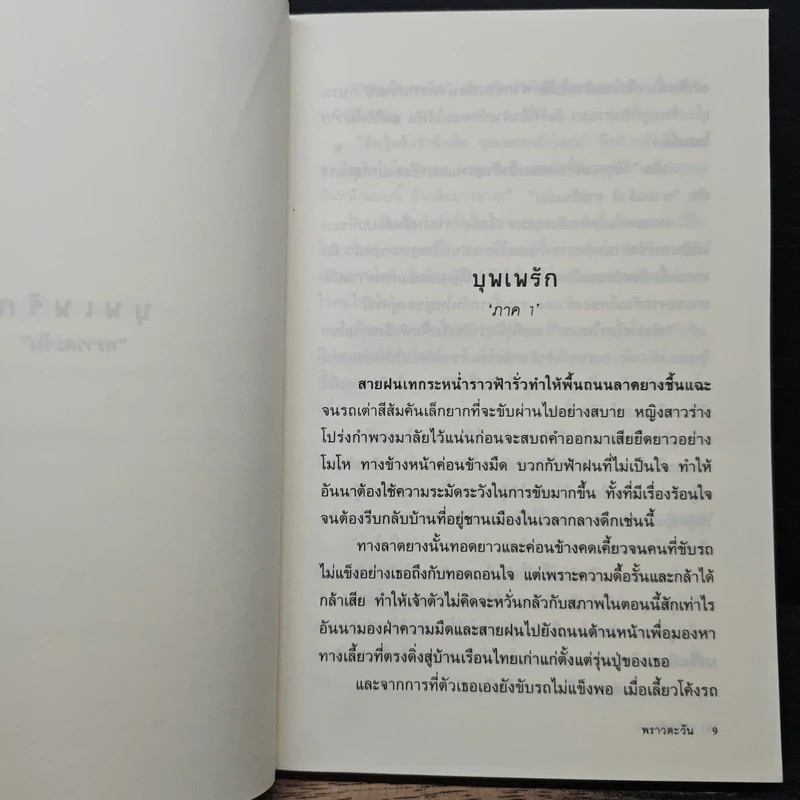 บุพเพรัก
'ภาค ๑'
สายฝนเทกระหน่ำราวฟ้ารั่วทำให้พื้นถนนลาดยางชื้นแฉะ
จนรถเต่าสีส้มคันเล็กยากที่จะขับผ่านไปอย่างสบาย หญิงสาวร่าง
โปร่งกำพวงมาลัยไว้แน่นก่อนจะสบถคำออกมาเสียยืดยาวอย่าง
โมโห ทางข้างหน้าค่อนข้างมืด บวกกับฟ้าฝนที่ไม่เป็นใจ ทำให้
อันนาต้องใช้ความระมัดระวังในการขับมากขึ้น ทั้งที่มีเรื่องร้อนใจ
จนต้องรีบกลับบ้านที่อยู่ชานเมืองในเวลากลางดึกเช่นนี้
ทางลาดยางนั้นทอดยาวและค่อนข้างคดเคี้ยวจนคนที่ขับรถ
ไม่แข็งอย่างเธอถึงกับทอดถอนใจ แต่เพราะความดื้อรั้นและกล้าได้
กล้าเสีย ทำให้เจ้าตัวไม่คิดจะหวั่นกลัวกับสภาพในตอนนี้สักเท่าไร
อันนามองฝ่าความมืดและสายฝนไปยังถนนด้านหน้าเพื่อมองหา
ทางเลี้ยวที่ตรงดิ่งสู่บ้านเรือนไทยเก่าแก่ตั้งแต่รุ่นปู่ของเธอ
และจากการที่ตัวเธอเองยังขับรถไม่แข็งพอ เมื่อเลี้ยวโค้งรถ
พราวตะวัน 9